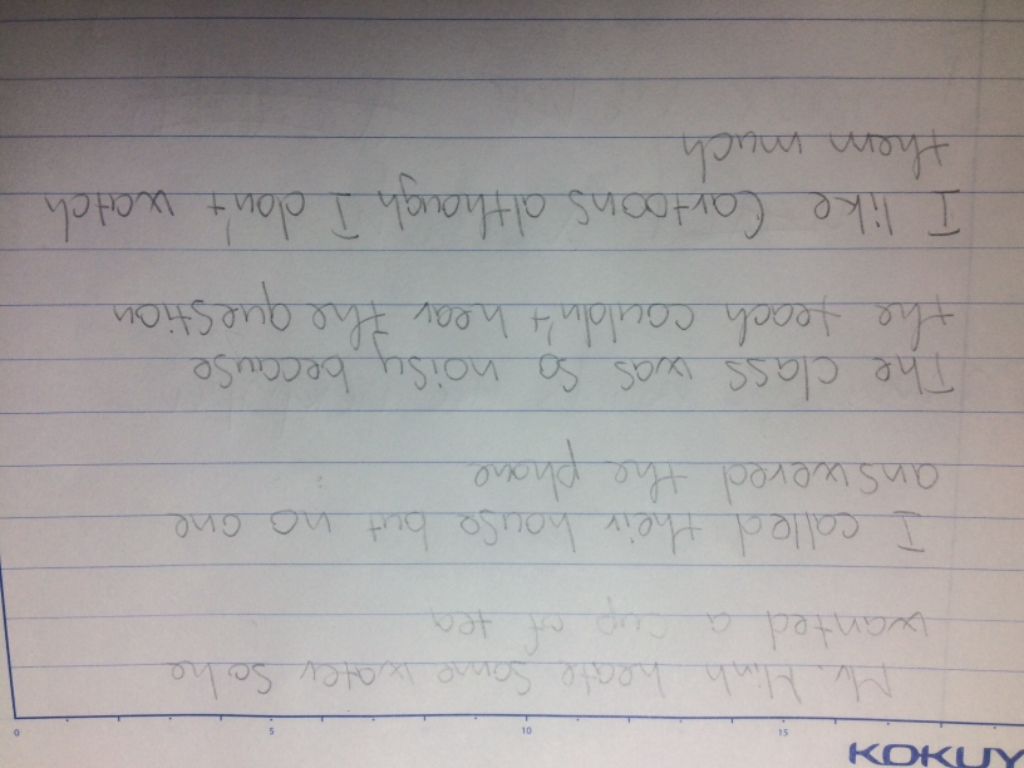 KOKUY
0 5 10 15
Mr. Minh heate some water so he
wanted a cup of tea
I called their house but no one
answered the phone
The class was so noisy because
the teach couldn't hear the question
I like Cartoons although I don't watch
them much